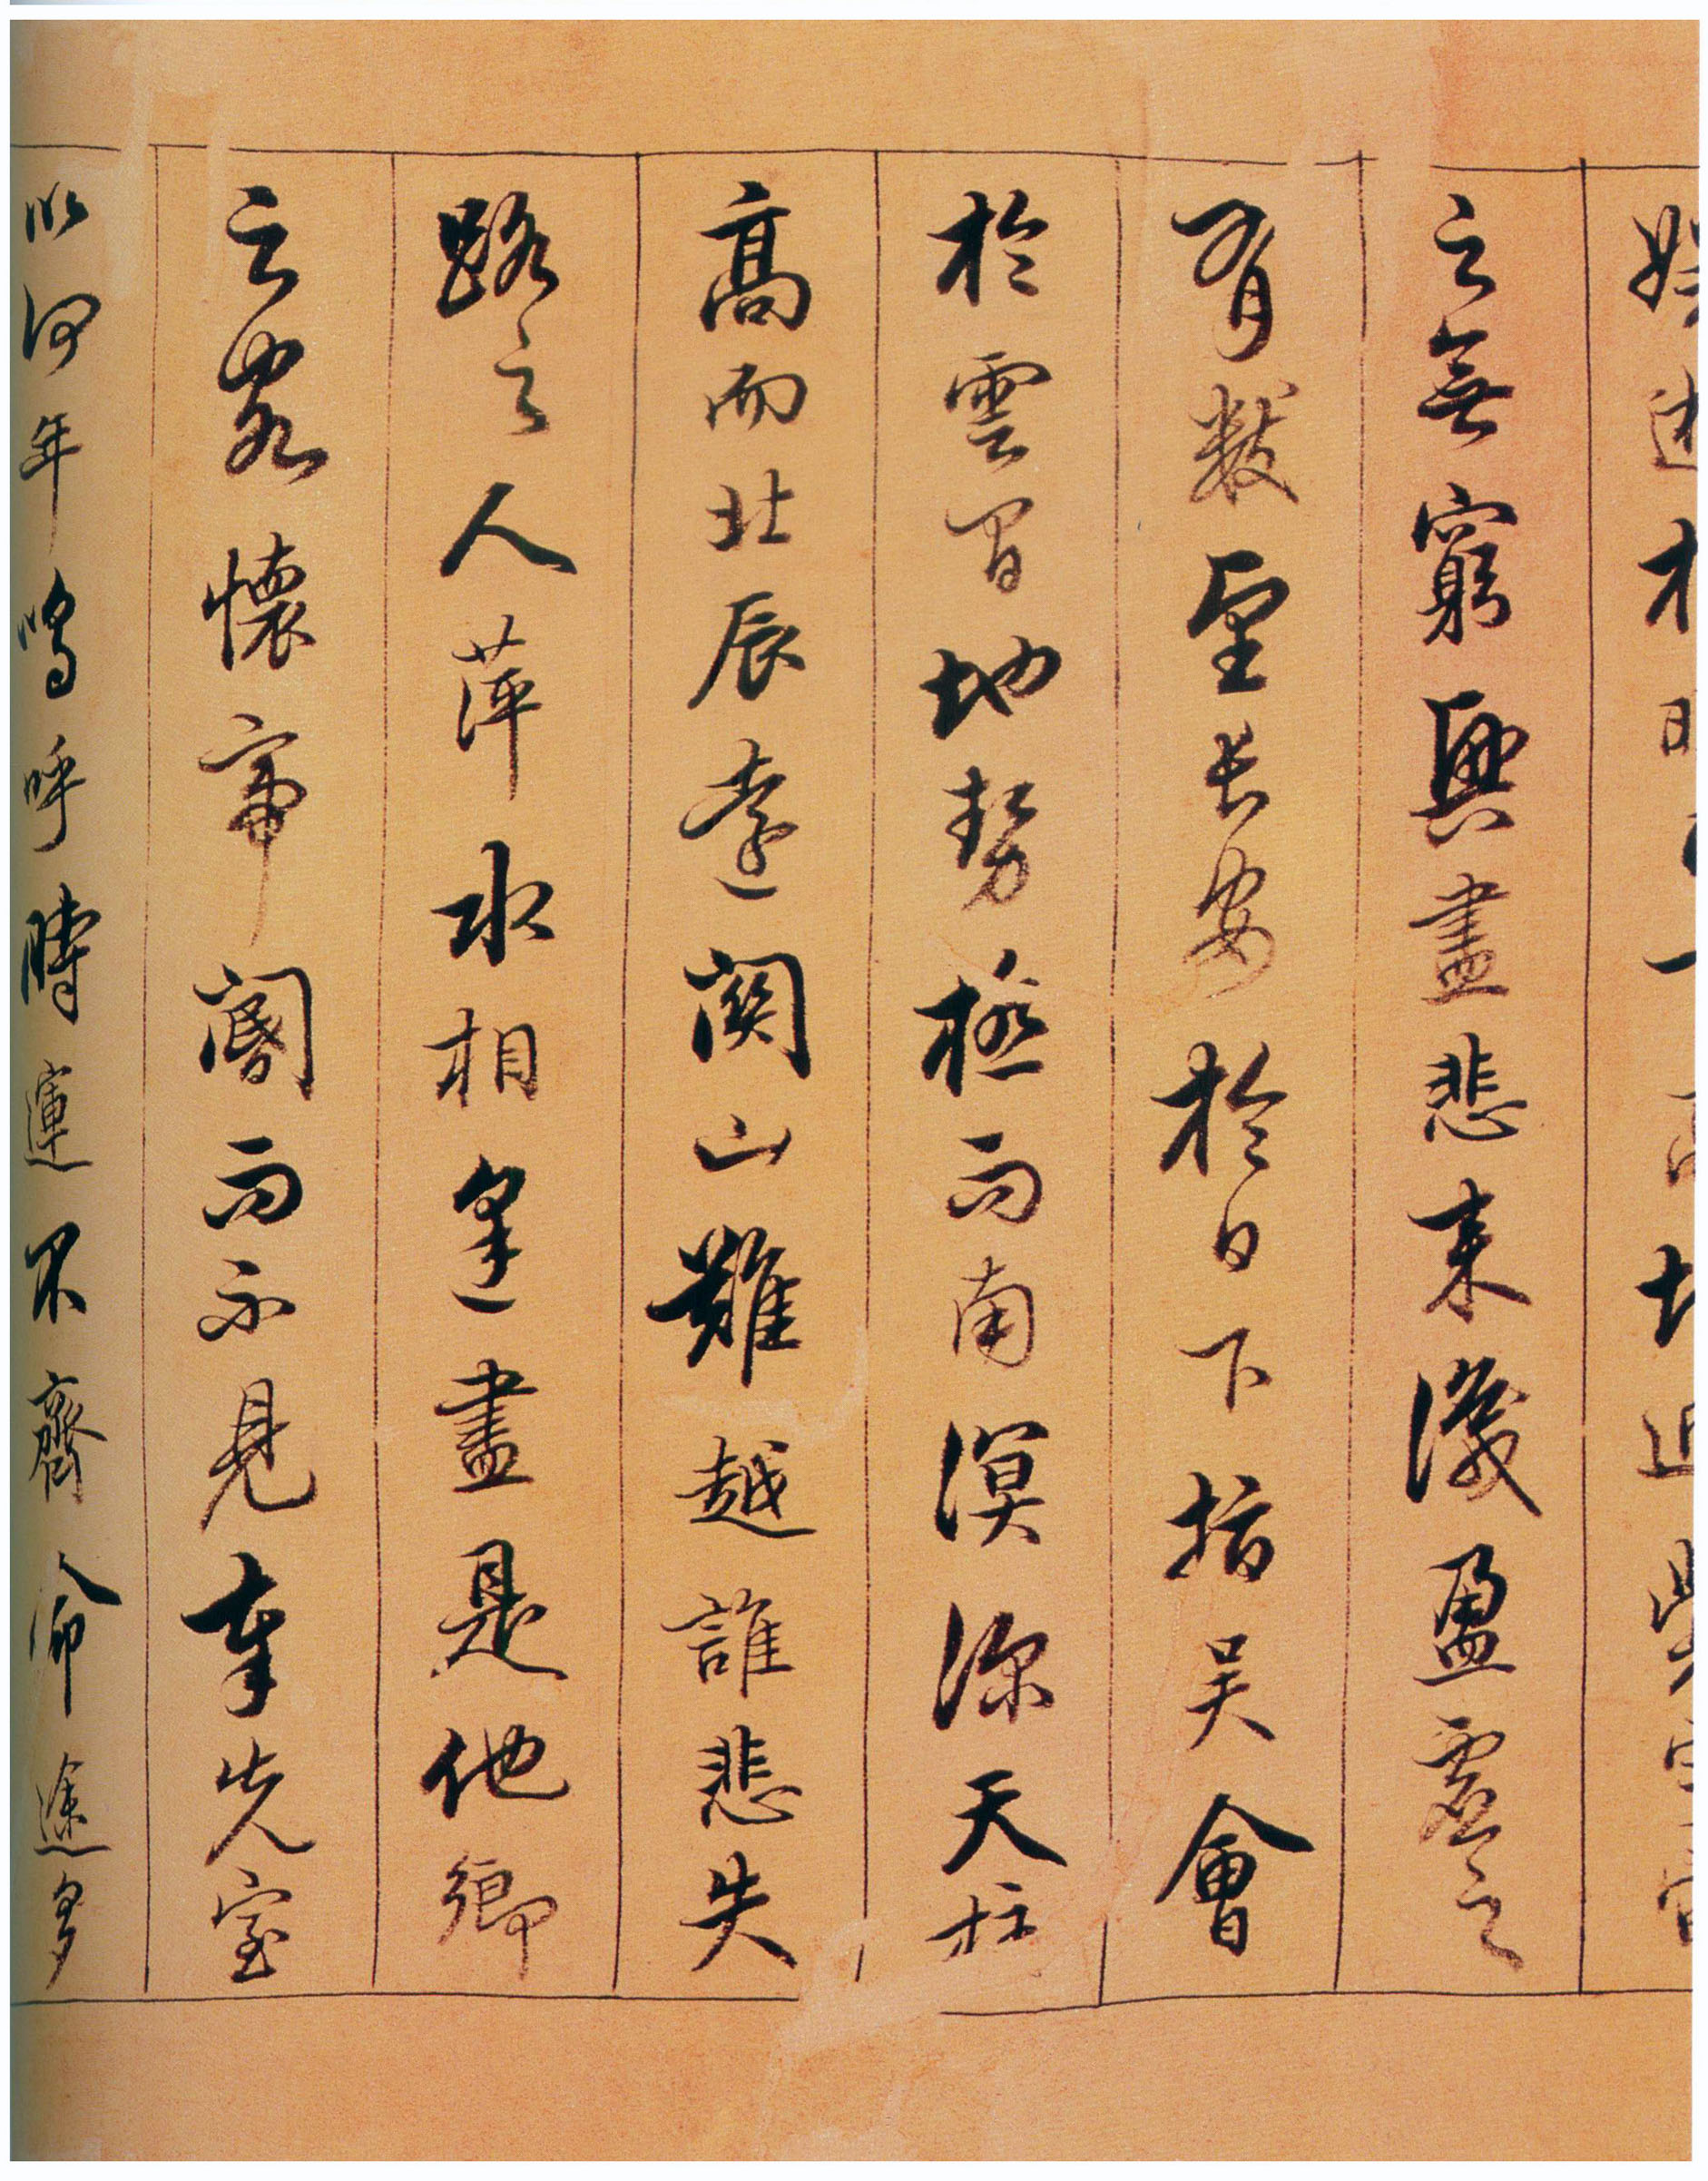 娛遊於暇日天高地迥覺宇宙
之無窮興盡悲来識盈虛之
有數望長安於日下指吴會
於雲間地勢極而南溟深天柱
高而北辰遠關山難越誰悲失
路之人萍水相逢盡是他鄉
之客懷帝閽而不見奉先室
以何年嗚呼時運不齊命途多